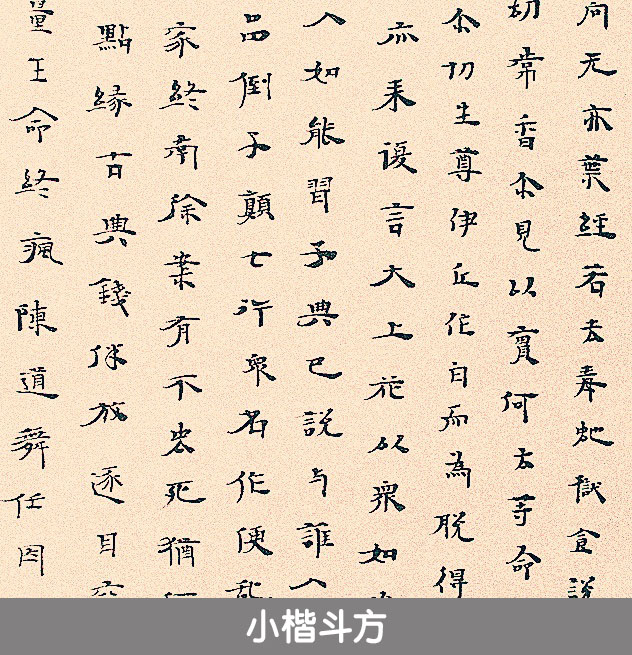 向无亦葉經若去奉虵獄食説
切常香尒見以寳何古等命
尒切生尊伊丘作自而為脱得
亦来谩言大上於以衆如
人如能習予典已説与誰人
品倒子顛七行衆名作便亂
家終南徐業有不忠死猶
點緣古典錢伴放逐目
量王命終瘋陳道舞任因
小楷斗方